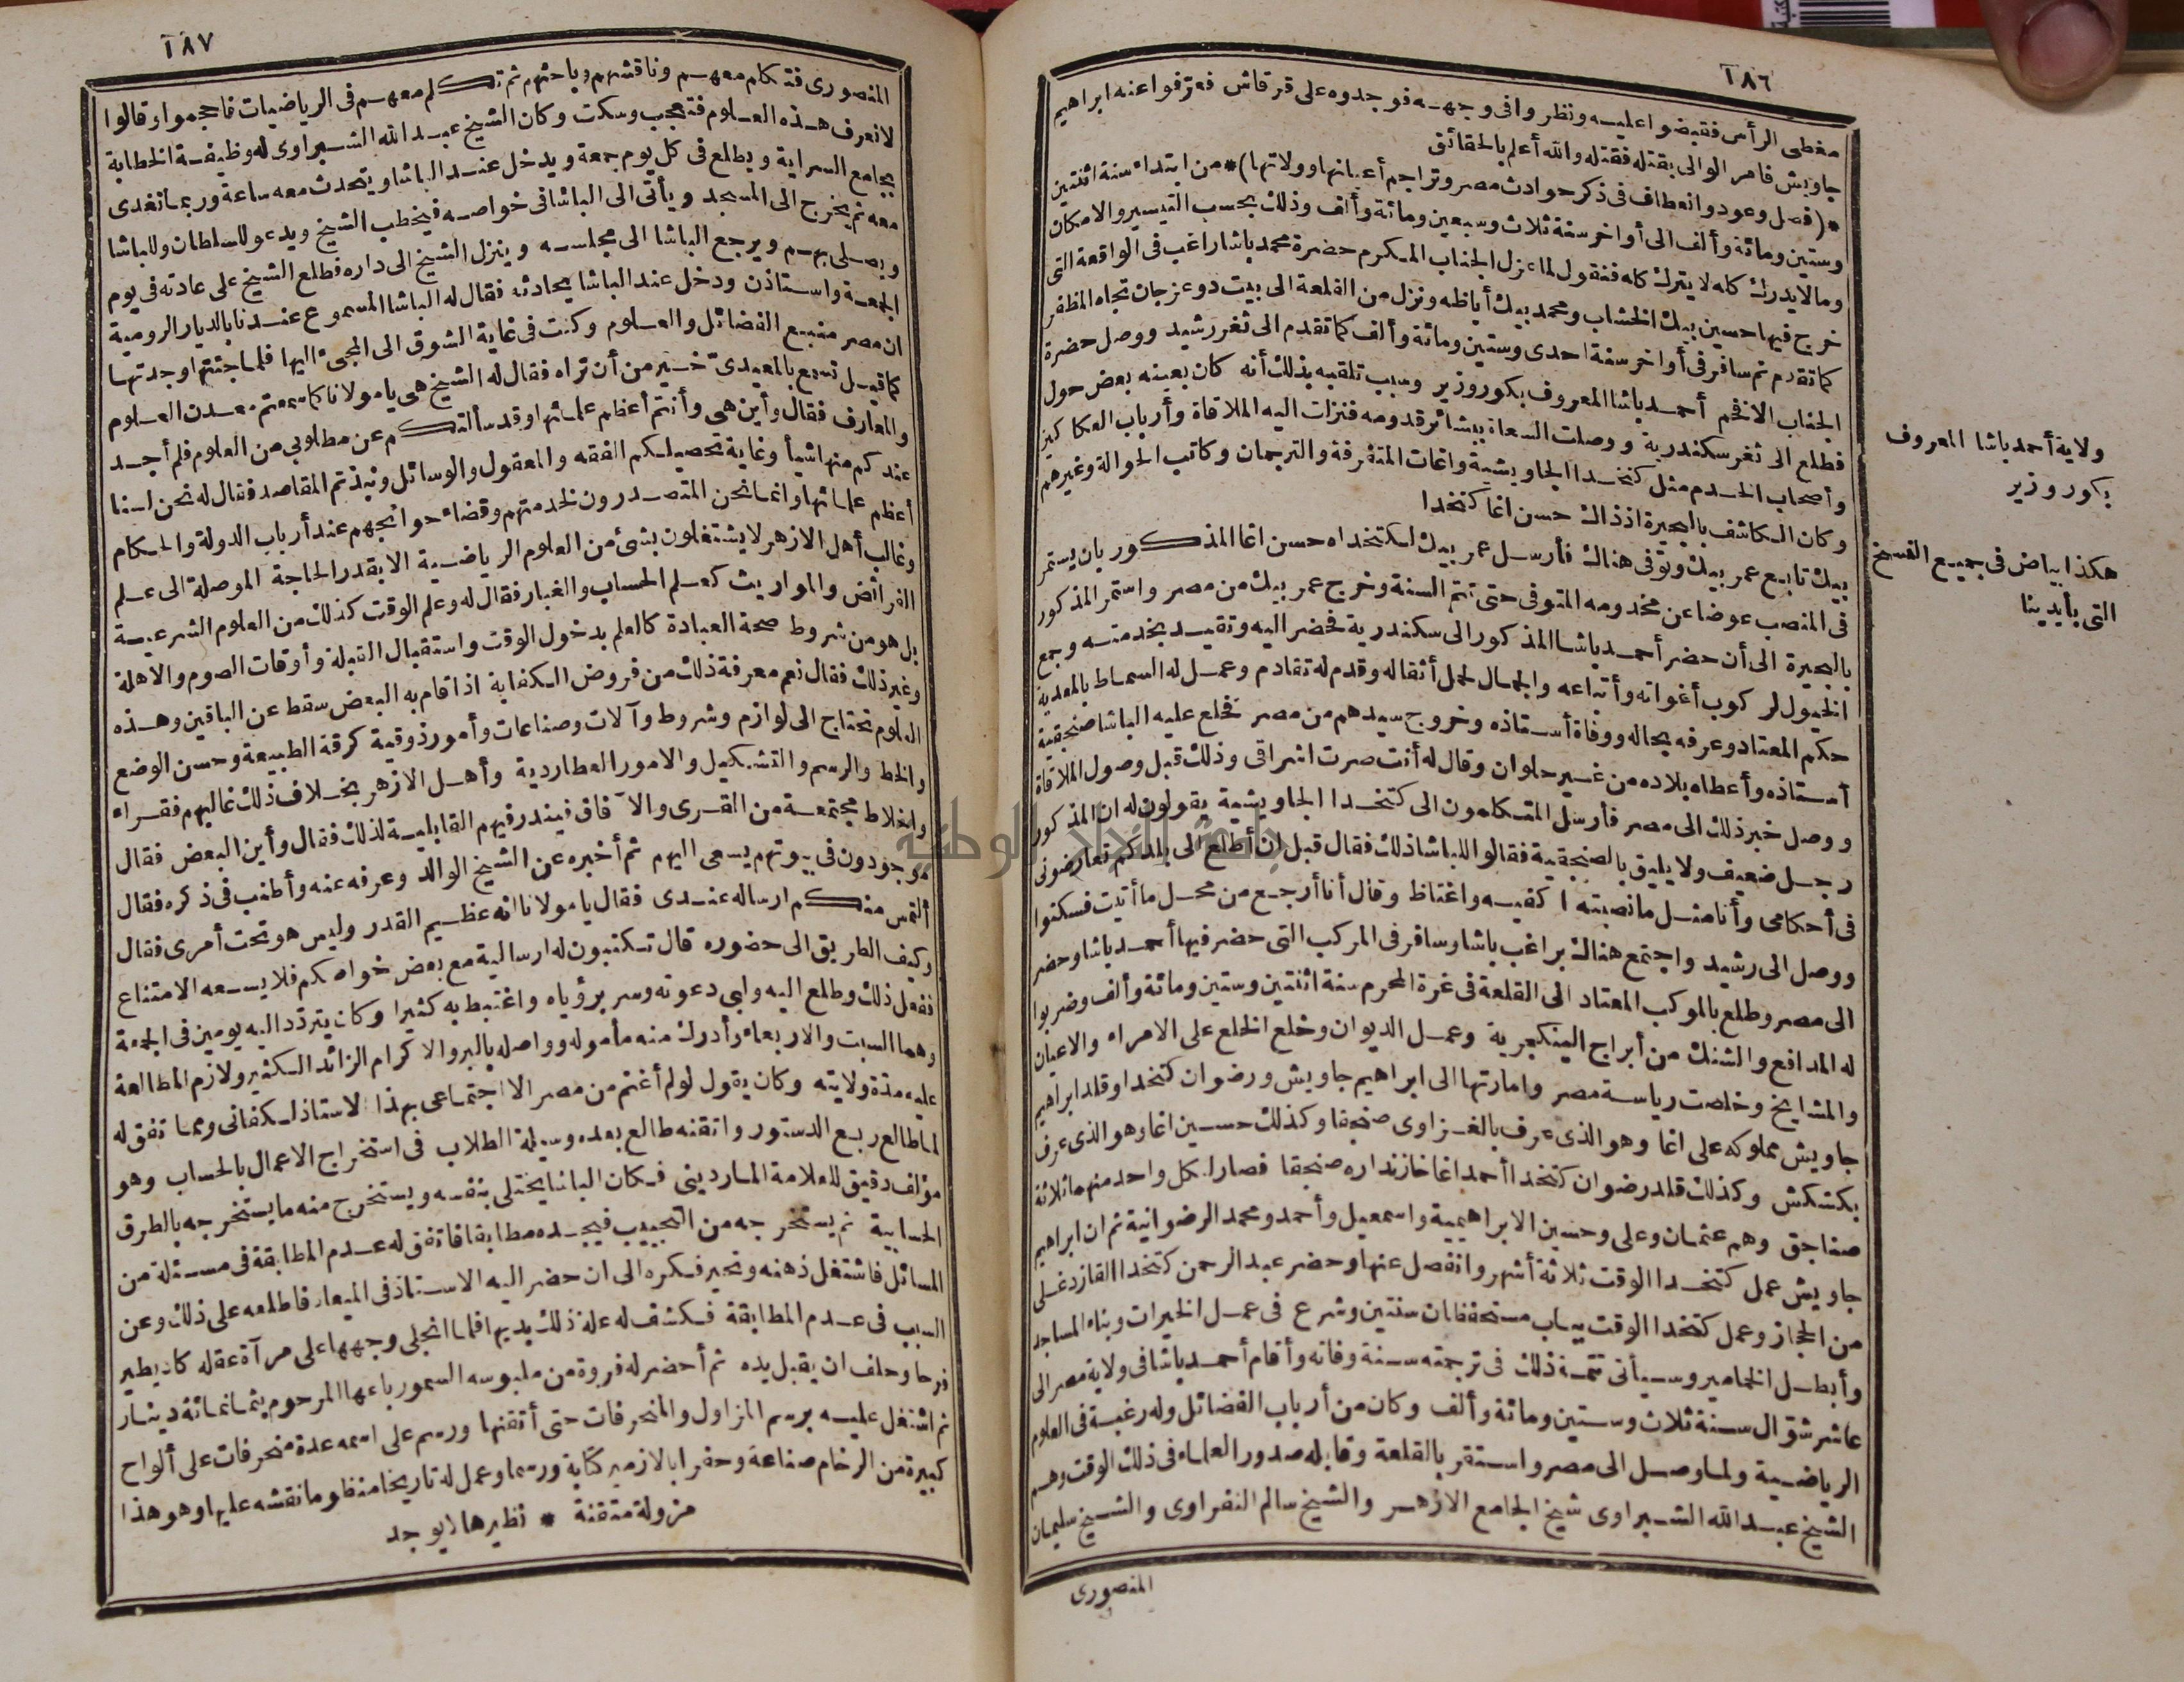 ١٨٦
مغطى الرأس فقبضوا عليه ونظروا فى وجهه فوجدوه على قرقاش فعرّفوا عنه ابراهيم
جاويش فامر الوالى بقتله فقتله والله أعلم بالحقائق
*(فصل وعود وانعطاف فى ذكر حوادث مصر وتراجم أعيانها وولاتها)* من ابتداء سنة اثنتين
وستين ومائة وألف الى أواخر سنة ثلاث وسبعين ومائة وألف وذلك بحسب التيسير والامكان
ومالا يدرك كله لا يترك كله فنقول لما عزل الجناب المكرم حضرة محمد باشا راغب فى الواقعة التى
خرج فيها حسين بيك الخشاب ومحمد بيك أباظه ونزل من القلعة الى بيت دوعزجان تجاه المظفر
كما تقدم ثم سافر فى أواخر سنة احدى وستين ومائة وألف كما تقدم الى ثغر رشيد ووصل حضرة
الجناب الافخم أحمد باشا المعروف بكور وزير وسبب تلقيبه بذلك أنه كان بعينه بعض حول
فطلع الى ثغر سكندرية ووصلت السعاة ببشائر قدومه فنزلت اليه الملاقاة وأرباب العكاكيز
وأصحاب الخدم مثل كتخدا الجاويشية واغات المتفرقة والترجمان وكاتب الحوالة وغيرهم
وكان الكاشف بالبحيرة اذ ذاك حسن اغا كتخدا
بيك تابع عمر بيك وتوفى هناك فأرسل عمر بيك لكتخداه حسن اغا المذكور بان يستمر
فى المنصب عوضا عن مخدومه المتوفى حتى تتم السنة وخرج عمر بيك من مصر واستمر المذكور
بالبحيرة الى أن حضر أحمد باشا المذكور الى سكندرية فحضر اليه وتقيد بخدمته وجمع
الخيول لركوب أغواته وأتباعه والجمال لحمل أثقاله وقدم له تقادم وعمل له السماط بالمعدية
حكم المعتاد وعرفه بحاله ووفاة أستاذه وخروج سيدهم من مصر فخلع عليه الباشا صنجقية
أستاذه وأعطاه بلاده من غير حلوان وقال له أنت صرت اشراقى وذلك قبل وصول الملاقاة
ووصل خبر ذلك الى مصر فأرسل المتكلمون الى كتخدا الجاويشية يقولون له ان المذكور
رجل ضعيف ولا يليق بالصنجقية فقالوا للباشا ذلك فقال قبل ان أطلع الى بلدكم تعارضونى
فى أحكامى وأنا مثل ما نصبته ا كفيه واغتاظ وقال أنا أرجع من محل ما أتيت فسكتوا
ووصل الى رشيد واجتمع هناك براغب باشا وسافر فى المركب التى حضر فيها أحمد باشا وحضر
الى مصر وطلع بالموكب المعتاد الى القلعة فى غرة المحرم سنة اثنتين وستين ومائة وألف وضربوا
له المدافع والشنك من أبراج الينكجرية وعمل الديوان وخلع الخلع على الامراء والاعيان
والمشايخ وخلصت رياسة مصر وامارتها الى ابراهيم جاويش ورضوان كتخدا وقلد ابراهيم
جاويش مملوكه على اغا وهو الذى عرف بالغزاوى صنجقا وكذلك حسين اغا وهو الذى عرف
بكشكش وكذلك قلد رضوان كتخدا أحمد اغا خازنداره صنجقا فصار لكل واحد منهما ثلاثة
صناجق وهم عثمان وعلى وحسين الابراهيمية واسمعيل وأحمد ومحمد الرضوانية ثم ان ابراهيم
جاويش عمل كتخدا الوقت ثلاثة أشهر وانفصل عنها وحضر عبد الرحمن كتخدا القازدغلى
من الحجاز وعمل كتخدا الوقت بباب مستحفظان سنتين وشرع فى عمل الخيرات وبناء المساجد
وأبطل الخمامير وسيأتى تتمة ذلك فى ترجمته سنة وفاته وأقام أحمد باشا فى ولاية مصر الى
عاشر شوّال سنة ثلاث وستين ومائة وألف وكان من أرباب الفضائل وله رغبة فى العلوم
الرياضية ولما وصل الى مصر واستقر بالقلعة وقابله صدور العلماء فى ذلك الوقت وهم
الشيخ عبد الله الشبراوى شيخ الجامع الازهر والشيخ سالم النفراوى والشيخ سليمان
المنصورى
ولاية أحمد باشا المعروف
بكور وزير
هكذا بياض فى جميع النسخ
التى بأيدينا
١٨٧
المنصورى فتكلم معهم وناقشهم وباحثهم ثم تكلم معهم فى الرياضيات فاحجموا وقالوا
لا نعرف هذه العلوم فتعجب وسكت وكان الشيخ عبد الله الشبراوى له وظيفة الخطابة
بجامع السراية ويطلع فى كل يوم جمعة ويدخل عند الباشا ويتحدث معه ساعة وربما تغدى
معه ثم يخرج الى المسجد ويأتى الى الباشا فى خواصه فيخطب الشيخ ويدعو للسلطان وللباشا
ويصلى بهم ويرجع الباشا الى مجلسه وينزل الشيخ الى داره فطلع الشيخ على عادته فى يوم
الجمعة واستاذن ودخل عند الباشا يحادثه فقال له الباشا المسموع عندنا بالديار الرومية
ان مصر منبع الفضائل والعلوم وكنت فى غاية الشوق الى المجىء اليها فلما جئتها وجدتها
كما قيل تسمع بالمعيدىّ خير من أن تراه فقال له الشيخ هى يا مولانا كما سمعتم معدن العلوم
والمعارف فقال وأين هى وأنتم أعظم علمائها وقد سألتكم عن مطلوبى من العلوم فلم أجد
عندكم منها شيأ وغاية تحصيلكم الفقه والمعقول والوسائل ونبذتم المقاصد فقال له نحن لسنا
أعظم علمائها وانما نحن المتصدرون لخدمتهم وقضاء حوائجهم عند أرباب الدولة والحكام
وغالب أهل الازهر لا يشتغلون بشئ من العلوم الرياضية الا بقدر الحاجة الموصلة الى علم
الفرائض والمواريث كعلم الحساب والغبار فقال له وعلم الوقت كذلك من العلوم الشرعية
بل هو من شروط صحة العبادة كالعلم بدخول الوقت واستقبال القبلة وأوقات الصوم والاهلة
وغير ذلك فقال نعم معرفة ذلك من فروض الكفاية اذا قام به البعض سقط عن الباقين وهذه
العلوم تحتاج الى لوازم وشروط وآلات وصناعات وأمور ذوقية كرقة الطبيعة وحسن الوضع
والخط والرسم والتشكيل والامور العطاردية وأهل الازهر بخلاف ذلك غالبهم فقراء
واخلاط مجتمعة من القرى والآفاق فيندر فيهم القابلية لذلك فقال وأين البعض فقال
موجودون فى بيوتهم يسعى اليهم ثم أخبره عن الشيخ الوالد وعرفه عنه وأطنب فى ذكره فقال
ألتمس منكم ارساله عندى فقال يا مولانا انه عظيم القدر وليس هو تحت أمرى فقال
وكيف الطريق الى حضوره قال تكتبون له ارسالية مع بعض خواصكم فلا يسعه الامتناع
ففعل ذلك وطلع اليه ولبى دعوته وسر برؤياه واغتبط به كثيرا وكان يتردّد اليه يومين فى الجمعة
وهما السبت والاربعاء وأدرك منه مأموله وواصله بالبر والاكرام الزائد الكثير ولازم المطالعة
عليه مدّة ولايته وكان يقول لو لم أغنم من مصر الا اجتماعى بهذا الاستاذ لكفانى ومما تفق له
لما طالع ربع الدستور واتقنه طالع بعده وسيلة الطلاب فى استخراج الاعمال بالحساب وهو
مؤلف دقيق للعلامة الماردينى فكان الباشا يختلى بنفسه ويستخرج منه ما يستخرجه بالطرق
الحسابية ثم يستخرجه من التجييب فيجده مطابقا فاتفق له عدم المطابقة فى مسئلة من
المسائل فاشتغل ذهنه وتحير فكره الى ان حضر اليه الاستاذ فى الميعاد فاطلعه على ذلك وعن
السبب فى عدم المطابقة فكشف له علة ذلك بديها فلما انجلى وجهها على مرآة عقله كاد يطير
فرحا وحلف ان يقبل يده ثم أحضر له فروة من ملبوسه السمور باعها المرحوم بثمانمائة دينار
ثم اشتغل عليه برسم المزاول والمنحرفات حتى أتقنها ورسم على اسمه عدة منحرفات على ألواح
كبيرة من الرخام صناعة وحفرا بالازمير كتابة ورسما وعمل له تاريخا منظوما نقشه عليها وهو هذا
مزولة متقنة * نظيرها لا يوجد